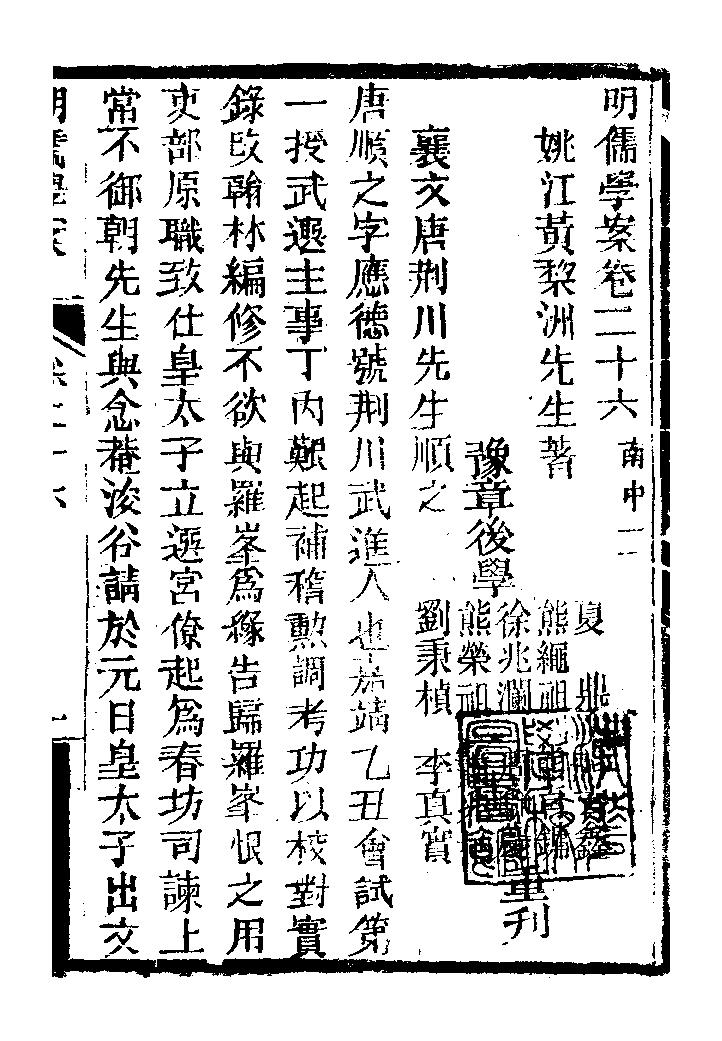 明儒學案卷二十六 南中二
姚江黃黎洲先生著
豫章後學
夏鼎
熊繩祖
徐兆瀾
熊榮祖
劉秉楨 李真實
重刊
襄文唐荊川先生順之
唐順之字應德號荊川武進人也嘉靖乙丑會試第
一授武選主事丁內艱起補稽勲調考功以校對實
錄攺翰林編修不欲與羅峯爲緣告歸羅峯恨之用
吏部原職致仕皇太子立選宮僚起爲春坊司諫上
常不御朝先生與念菴浚谷請於元日皇太子出文